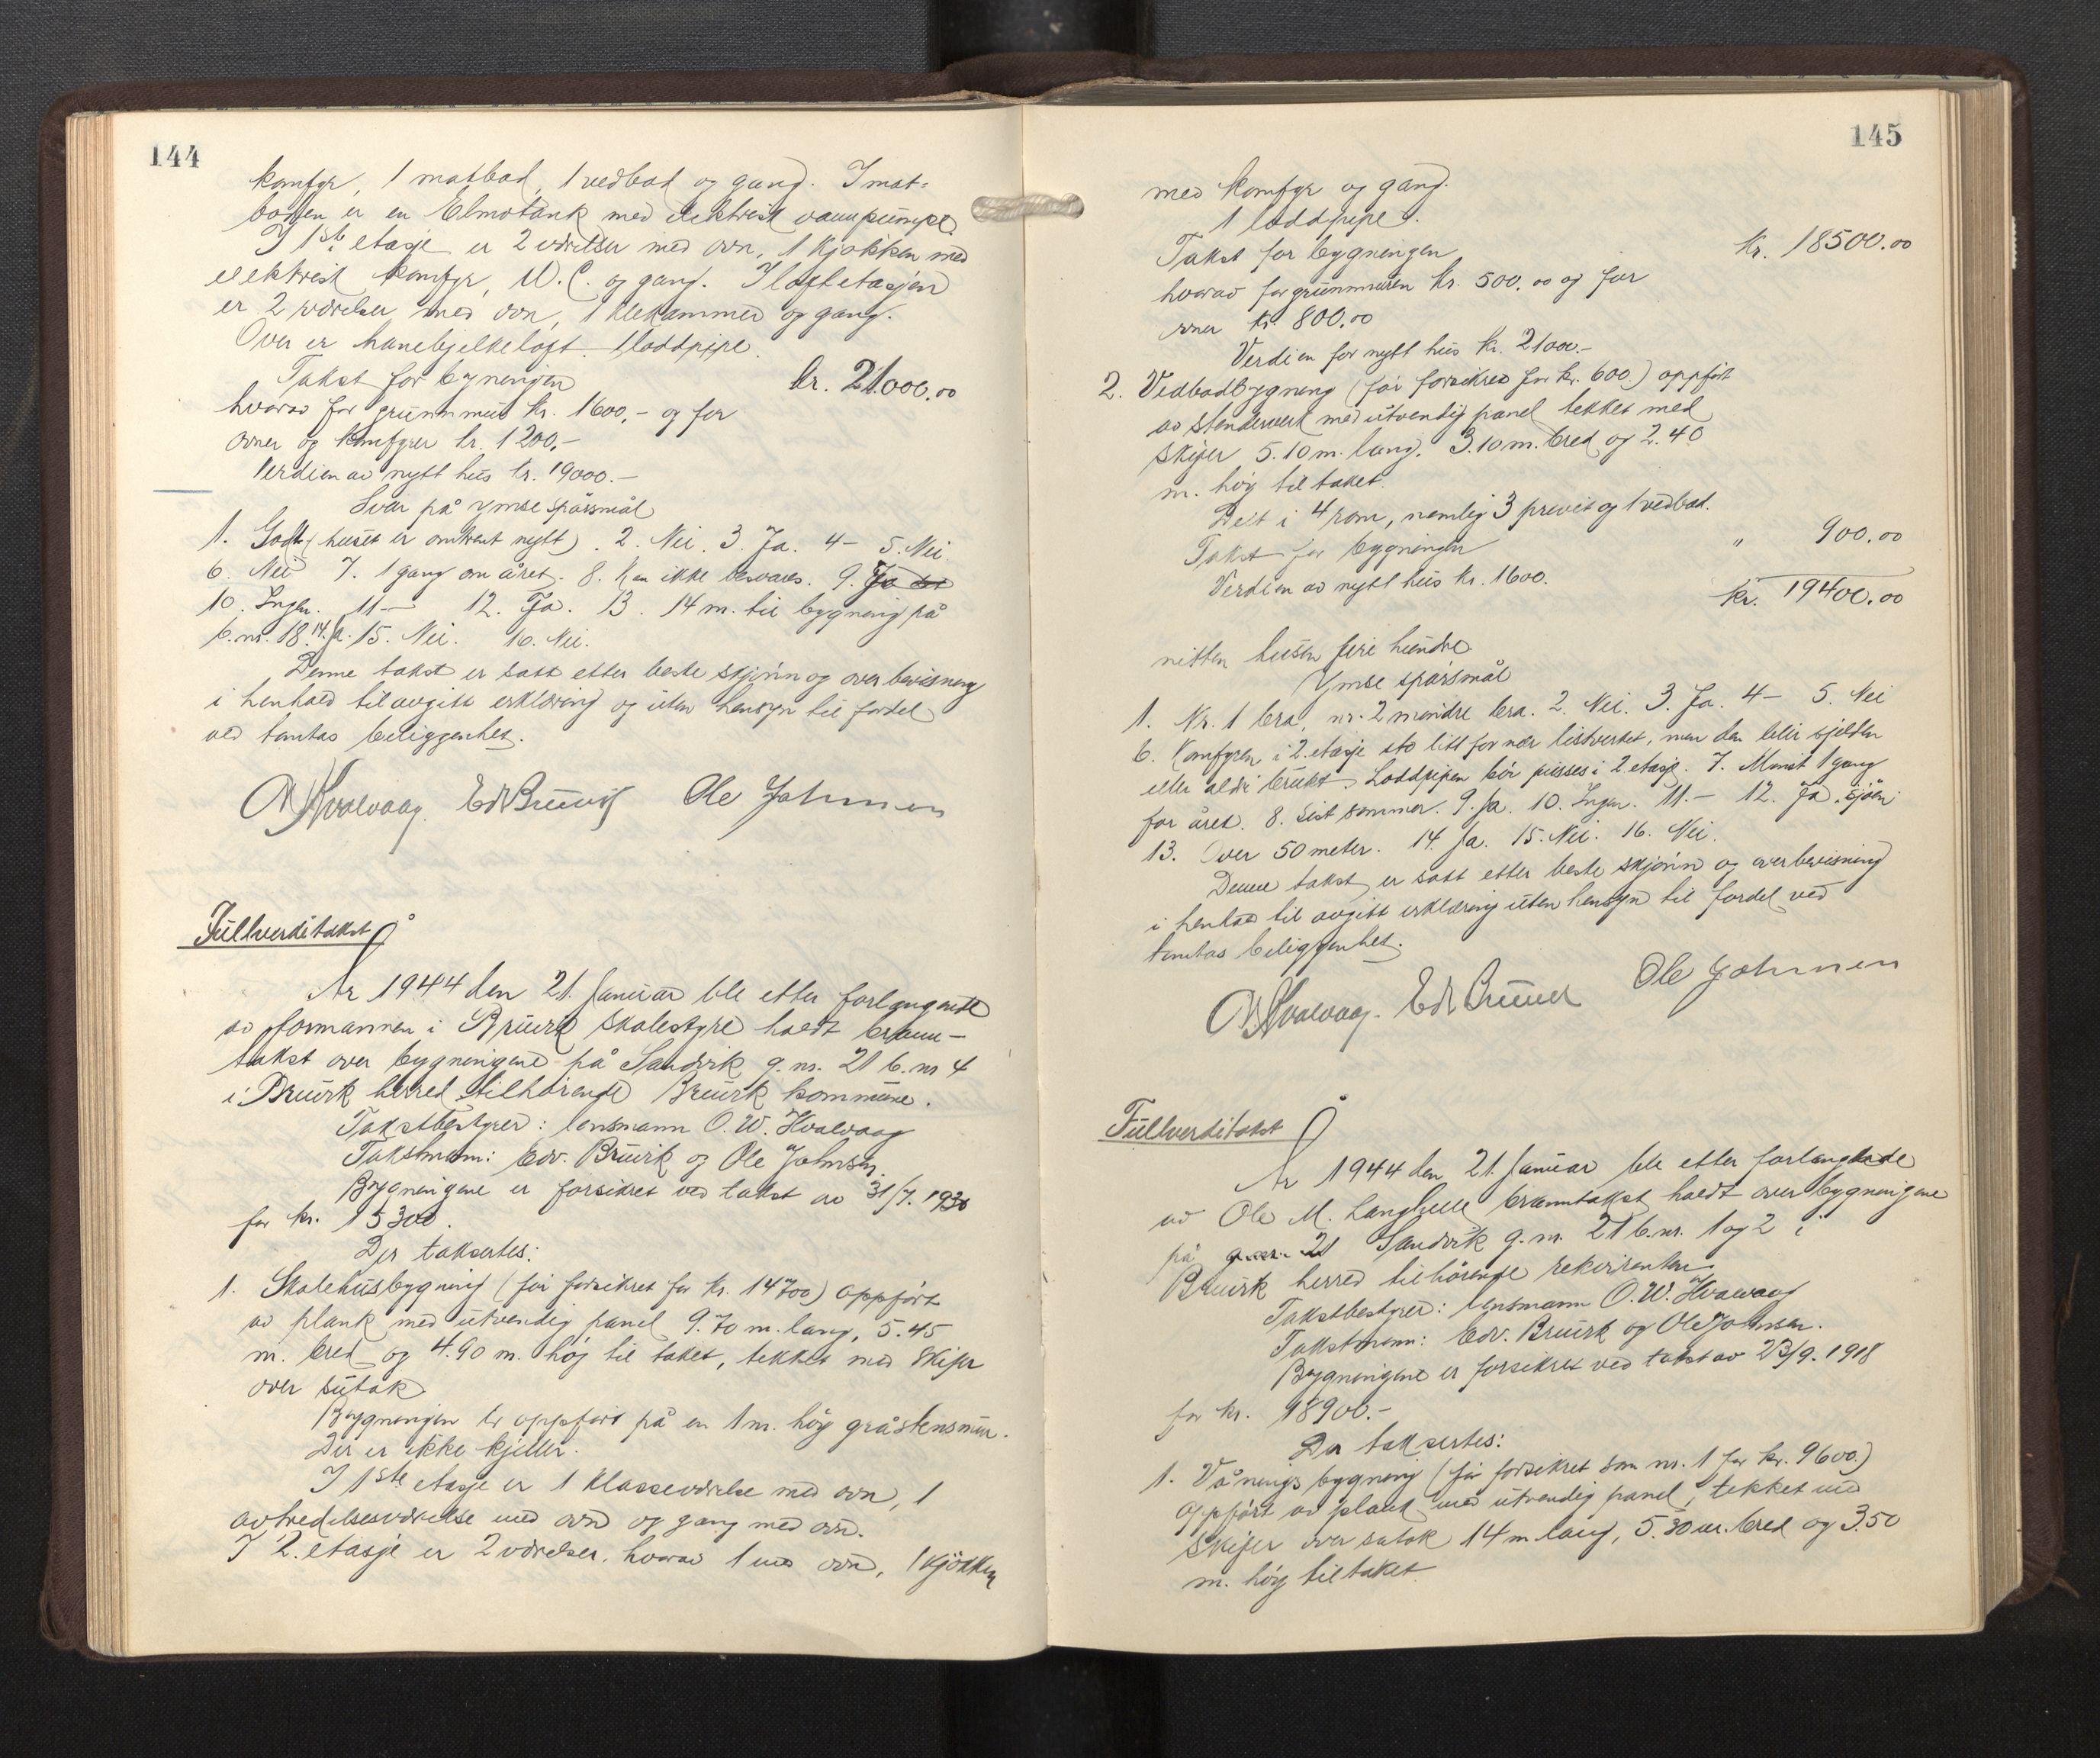 144
komfyr, 1 matbod, 1 vedbod og gang. I mat-
boden er en Elmotank med elektrisk vannpumpe.
I 1ste etasje er 2 værelser med ovn, 1 kjøkken med
elektrisk komfyr, W.C. og gang. I loftetasjen
er 2 værelser med ovn, 1 klekammer og gang.
Over er hanebjelkeloft. 1 loddpipe.
Takst for bygningen kr. 21.000.00
hvorav for grunnmur kr. 1600,- og for
ovner og komfyrer kr. 1200,-
Verdien av nytt hus kr. 19000.-
Svar på ymse spørsmål
1. Godt (huset er omtrent nytt). 2. Nei. 3. Ja. 4- 5. Nei
6. Nei 7. 1 gang om året. 8. Kan ikke besvares. 9. Ja
10. Ingen. 11- 12. Ja. 13. 14 m. til bygning på
b.nr. 18. 14. Ja. 15. Nei. 16. Nei.
Denne takst er satt etter beste skjønn og overbevisning
i henhold til avgitt erklæring og uten hensyn til fordel
ved tomtas beliggenhet.
O.W. Hvalvaag. Edv Bruvik Ole Johnsen
Fullverditakst
År 1944 den 21. Januar ble etter forlangende
av formannen i Bruvik skolestyre holdt brann-
takst over bygningene på Sandvik g.nr. 21 b.nr 4
i Bruvik herred tilhørende Bruvik kommune.
Takstbestyrer: lensmann O.W. Hvalvaag
Takstmenn: Edv. Bruvik og Ole Johnsen.
Bygningene er forsikret ved takst av 31/7. 1930
for kr. 15300.
Der taksertes:
1. Skolehusbygning (før forsikret for kr. 14700) oppført
av plank med utvendig panel 9.70 m. lang, 5.45
m. bred og 4.90 m. høg til taket, tekket med skifer
over sutak
Bygningen er oppført på en 1 m. høg gråstensmur.
Der er ikke kjeller.
I 1ste etasje er 1 klasseværelse med ovn, 1
avtredelsesværelse med ovn og gang med ovn.
I 2. etasje er 2 værelser, hvorav 1 med ovn, 1 kjøkken
145
med komfyr og gang.
1 loddpipe.
Takst for bygningen kr. 18500.00
hvorav for grunnmuren kr. 500.00 og for
ovner kr. 800.00
Verdien for nytt hus kr. 21000.-
2. Vedbodbygning (før forsikret for kr. 600.) oppført
av stenderverk med utvendig panel tekket med
skifer 5.10 m. lang, 3.10 m. bred og 2.40
m. høg til taket.
Delt i 4 rom, nemlig 3 priveer og 1 vedbod.
Takst for bygningen " 900.00
Verdien av nytt hus kr. 1600.
kr. 19400.00
nitten tusen fire hundre
Ymse spørsmål
1. Nr. 1 bra, nr. 2 mindre bra. 2. Nei. 3. Ja. 4- 5. Nei
6. Komfyren i 2. etasje sto litt for nær listverket, men den blir sjelden
eller aldri brukt. Loddpipen bør pusses i 2 etasje. 7. Minst 1 gang
for året. 8. Sist sommer. 9. Ja. 10. Ingen. 11.- 12. Ja, sjøen
13. Over 50 meter. 14. Ja. 15. Nei. 16. Nei.
Denne takst er satt etter beste skjønn og overbevisning
i henhold til avgitt erklæring uten hensyn til fordel ved
tomtas beliggenhet.
O.W. Hvalvaag. Edv Bruvik Ole Johnsen
Fullverditakst
År 1944 den 21. Januar ble etter forlangende
av Ole M. Langhelle branntakst holdt over bygningene
på Sandvik g.nr. 21 b.nr. 1 og 2 i
Bruvik herred tilhørende rekvirenten.
Takstbestyrer: lensmann O.W. Hvalvaag
Takstmenn: Edv. Bruvik og Ole Johnsen.
Bygningene er forsikret ved takst av 23/9. 1918
for kr. 18900.-
Der taksertes:
1. Våningsbygning (før forsikret som nr. 1 for kr. 9600.)
oppført av plank med utvendig panel, tekket med
skifer over sutak 14 m lang, 5.30 m. bred og 3.50
m. høg til taket